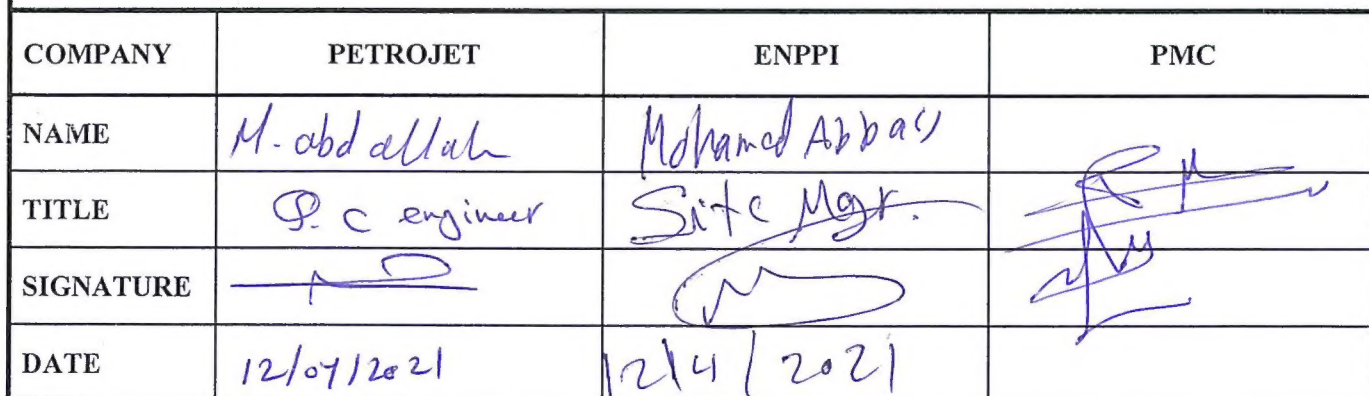 COMPANY PETROJET ENPPI PMC
NAME M. abdallah Mohamed Abbas
TITLE Q.C engineer Site Mgr.
SIGNATURE
DATE 12/04/2021 12/4/2021